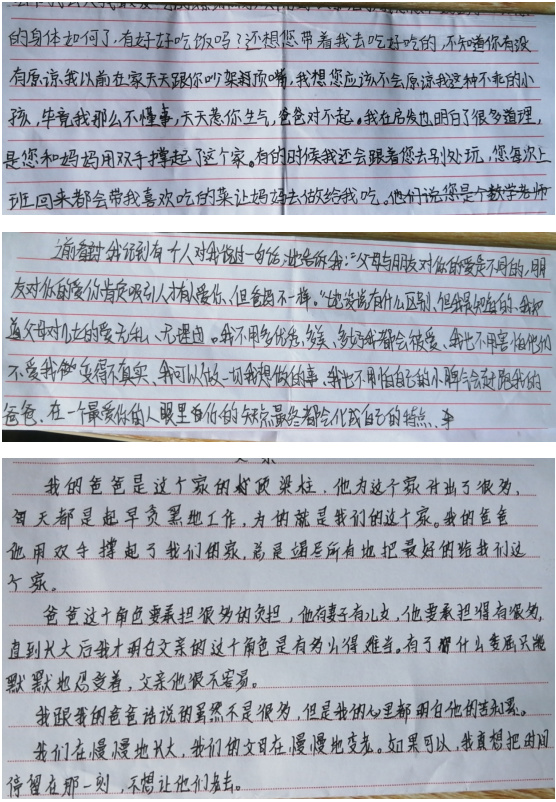 的身体如何了,有好好吃饭吗?还想您带着我去吃好吃的,不知道你有没
有原谅我以前在家天天跟你吵架对顶嘴,我想您应该不会原谅我这种不乖的小
孩,毕竟我那么不懂事,天天惹你生气,爸爸对不起。我在后发也明白了很多道理,
是您和妈妈用双手撑起了这个家。有的时候我还会跟着您去别处玩,您每次上
班回来都会带我喜欢吃的菜让妈妈去做给我吃。他们说您是个数学老师
前有个人对我说过一句话,他告诉我:"父母与朋友对你的爱是不同的,朋
友对你的爱你肯定吸引人才有人爱你,但爸妈不一样。"他没说有什么区别,但我是知道的,我把
父母对儿女的爱无私、无理由。我不用多优秀、多美、多好我都会被爱、我也不用害怕他们
不爱我做变得不真实、我可以做一切我想做的事、我也不用怕自己的小脾气会赶跑我的
爸爸、在一个最爱你的人眼里自你的缺点最终都会化成自己的特点、
我的爸爸是这个家的顶梁柱,他为这个家付出了很多,
每天都是起早贪黑地工作,为的就是我们的这个家。我的爸爸
他用双手撑起了我们的家,总是竭尽所有地把最好的给我们这
个家。
爸爸这个角色要承担很多的负担,他有妻子有儿女,他要承担得有很多,
直到长大后我才明白父亲的这个角色是有多么得难当。有了什么委屈只能
默默地忍受着,父亲他很不容易。
我跟我的爸爸话说的虽然不是很多,但是我的心里都明白他的苦和累。
我们在慢慢地长大,我们的父母在慢慢地变老。如果可以,我真想把时间
停留在那一刻,不想让他们老去。